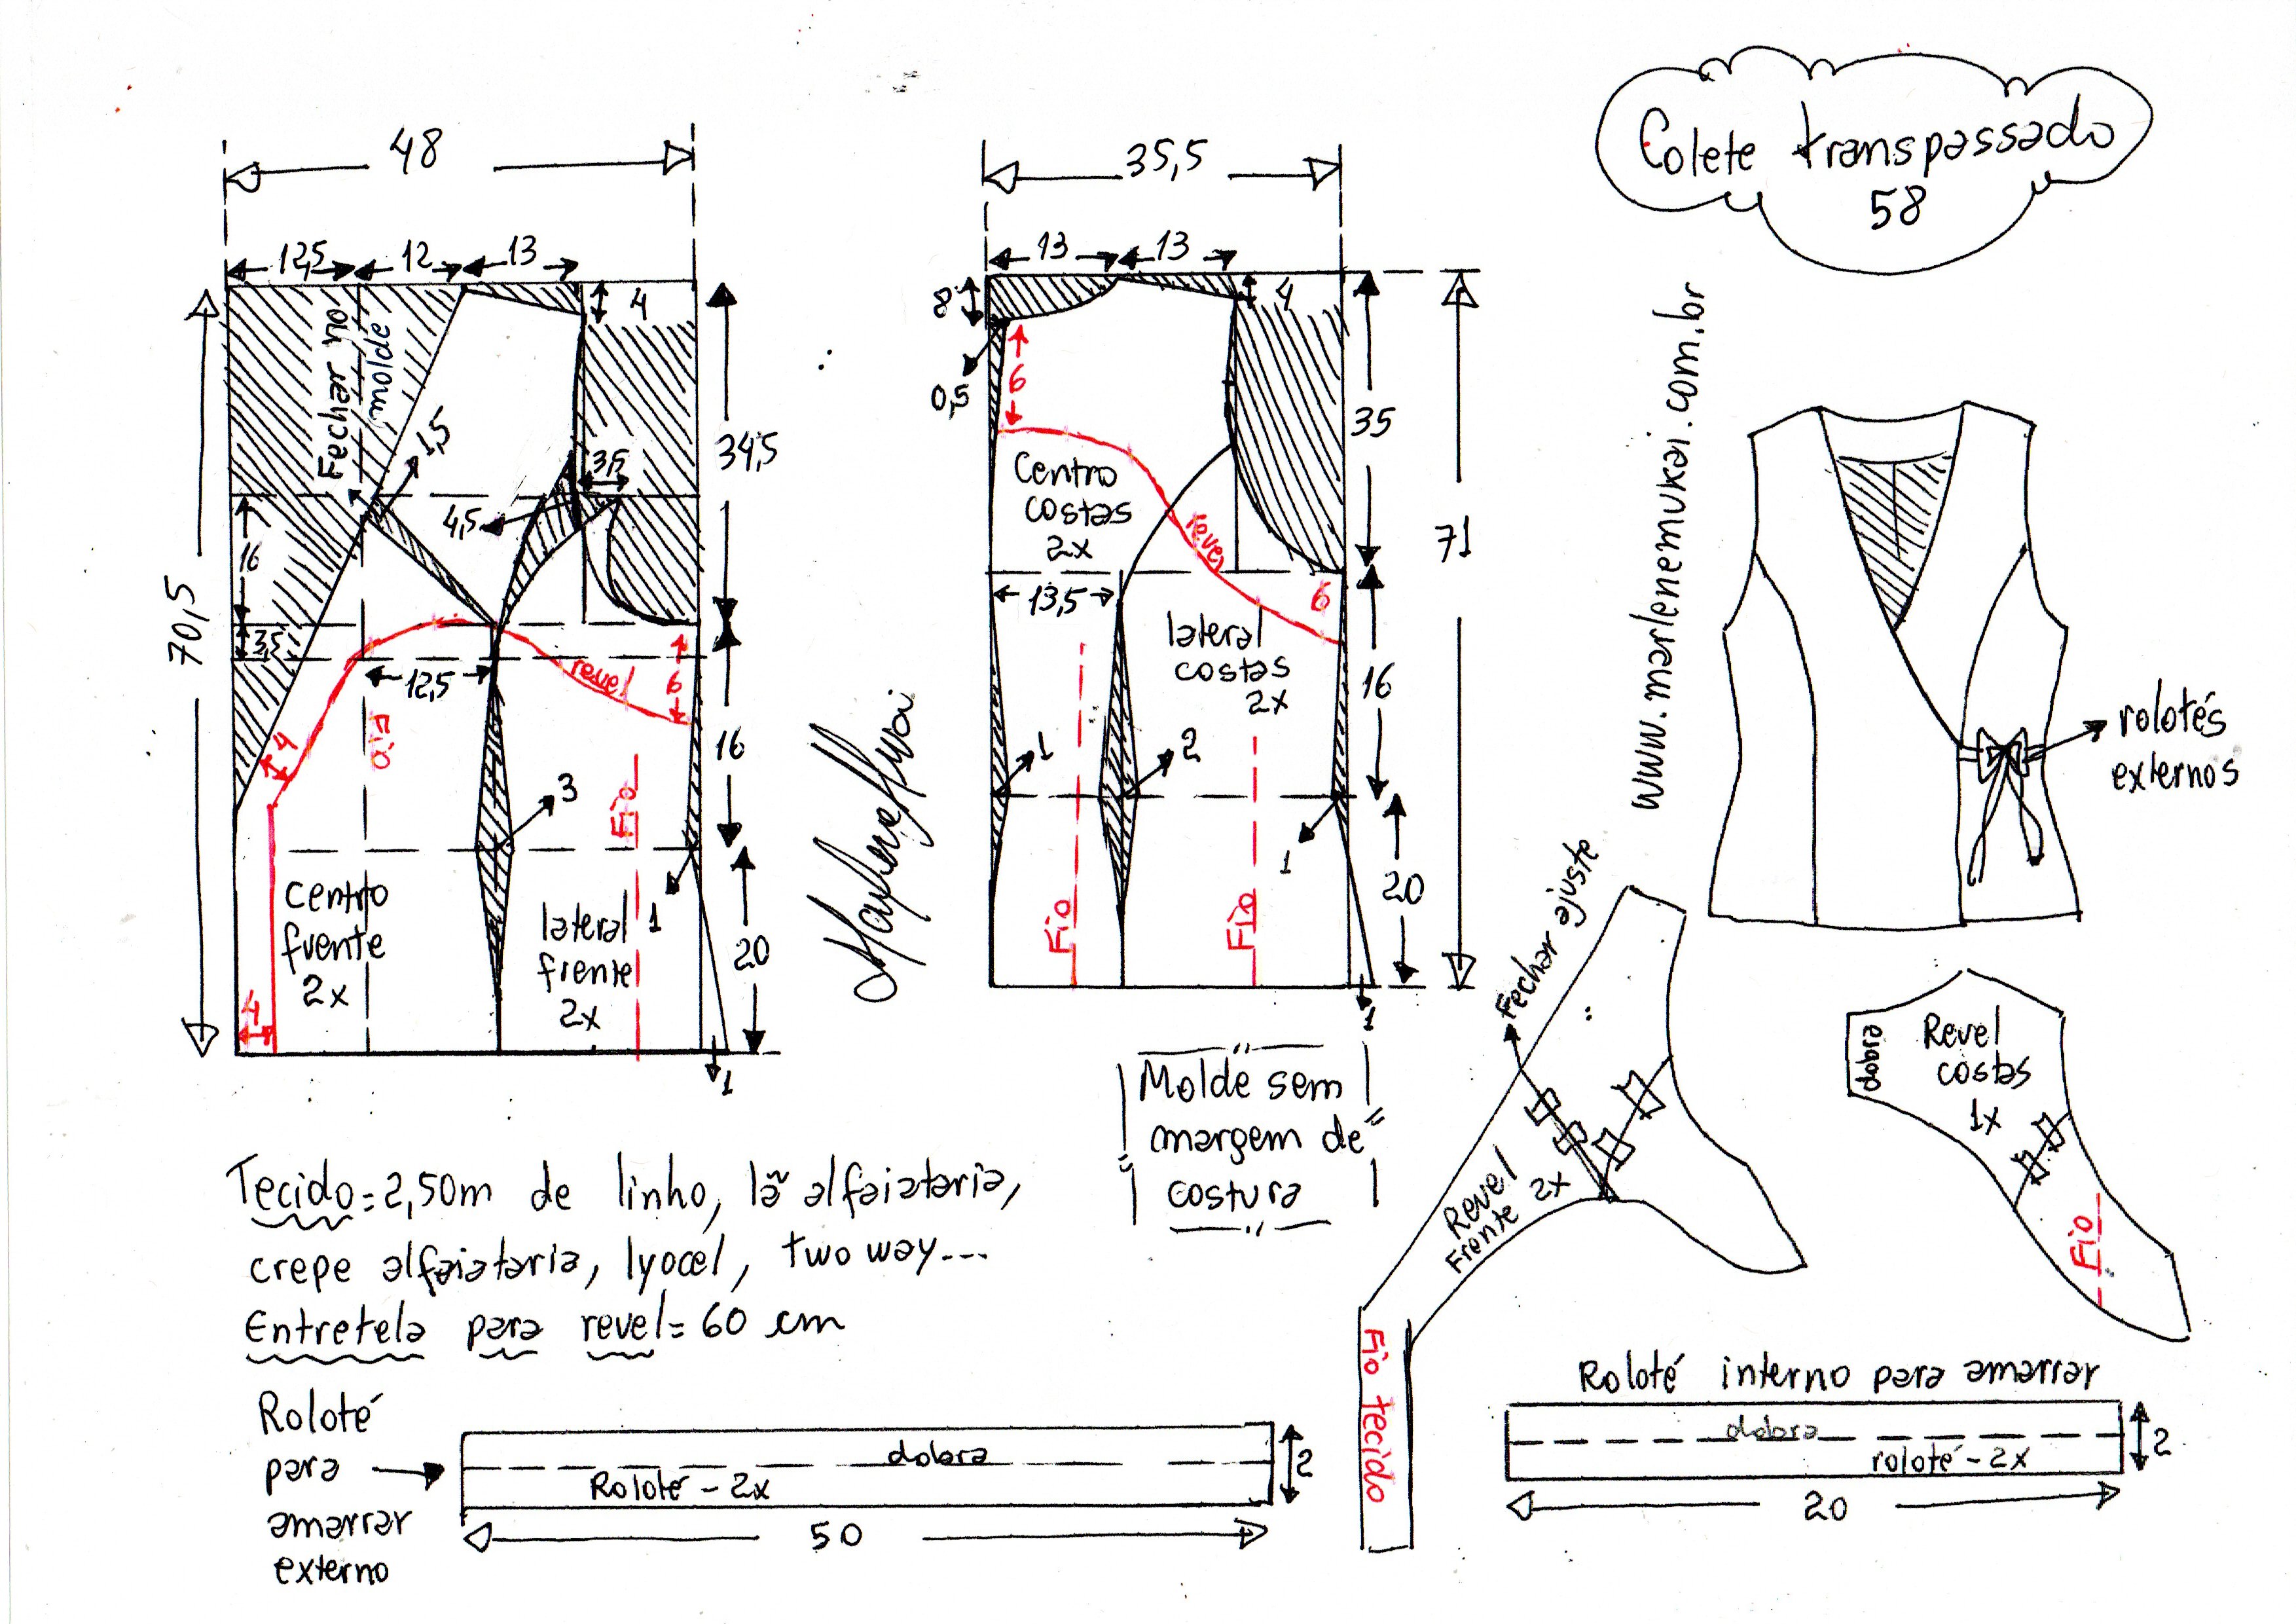 Colete transpassado
58
www.marlenemukai.com.br
48
12,5
12
13
4
Fechar no
molde
1,5
3,5
4,5
34,5
16
3,5
70,5
12,5
revel
6
4
Fio
16
3
Fio
1
centro
frente
2x
lateral
frente
2x
20
4
1
35,5
13
13
8
4
0,5
6
35
Centro
costas
2x
revel
71
13,5
6
lateral
costas
2x
16
1
2
1
Fio
Fio
20
1
rolotés
externos
Molde sem
margem de
costura
Fechar ajuste
Revel
Frente
2x
Fio tecido
dobra
Revel
costas
1x
Fio
Tecido=2,50m de linho, lã alfaiataria,
crepe alfaiataria, lyocel, two way...
Entretela para revel=60 cm
Roloté
para
amarrar
externo
dobra
Roloté - 2x
2
50
Roloté interno para amarrar
dobra
roloté - 2x
2
20